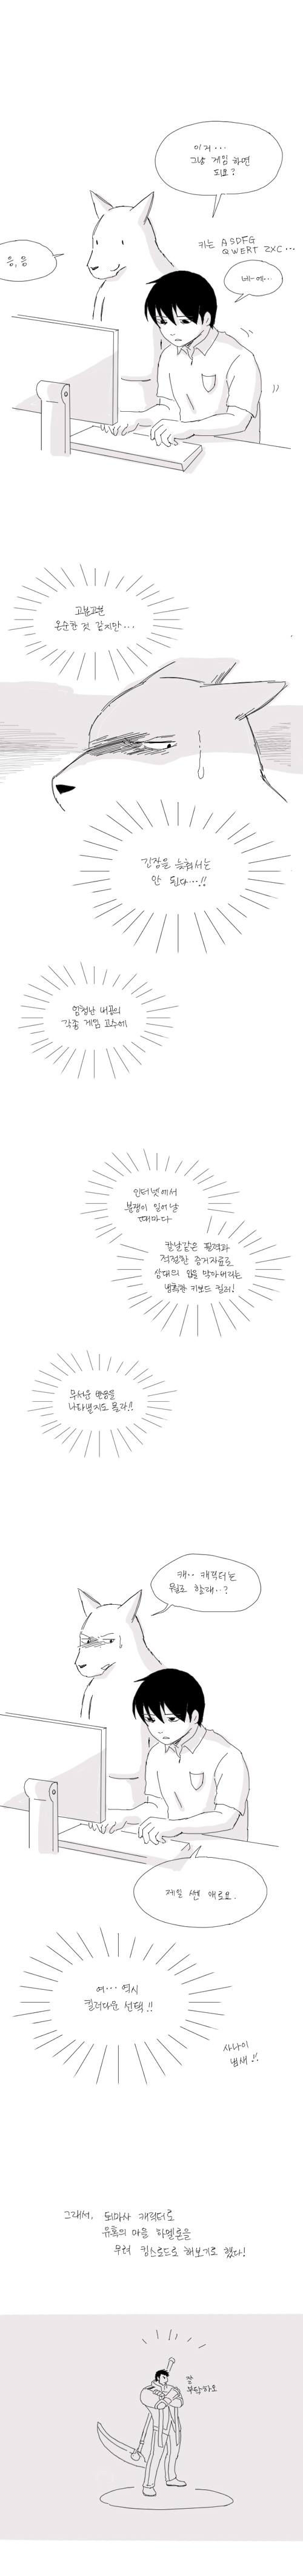 이거...
그냥 게임 하면
되요?
응, 응
키는 ASDFG
QWERT ZXC...
네-에...
고분고분
온순한 것 같지만...
긴장을 늦춰서는
안 된다...!!
엄청난 내공의
각종 게임 고수에
인터넷에서
분쟁이 일어날
때마다
칼날같은 필력과
적절한 증거자료로
상대의 입을 막아버리는
냉혹한 키보드 킬러!
무서운 반응을
나타낼지도 몰라!!
캐.. 캐릭터는
뭘로 할래..?
제일 쎈 애로요.
여... 역시
킬러다운 선택!!
사나이
냄새!!
그래서, 퇴마사 캐릭터로
유혹의 마을 하멜른을
무려 킹스로드로 해보기로 했다!
잘
부탁하오